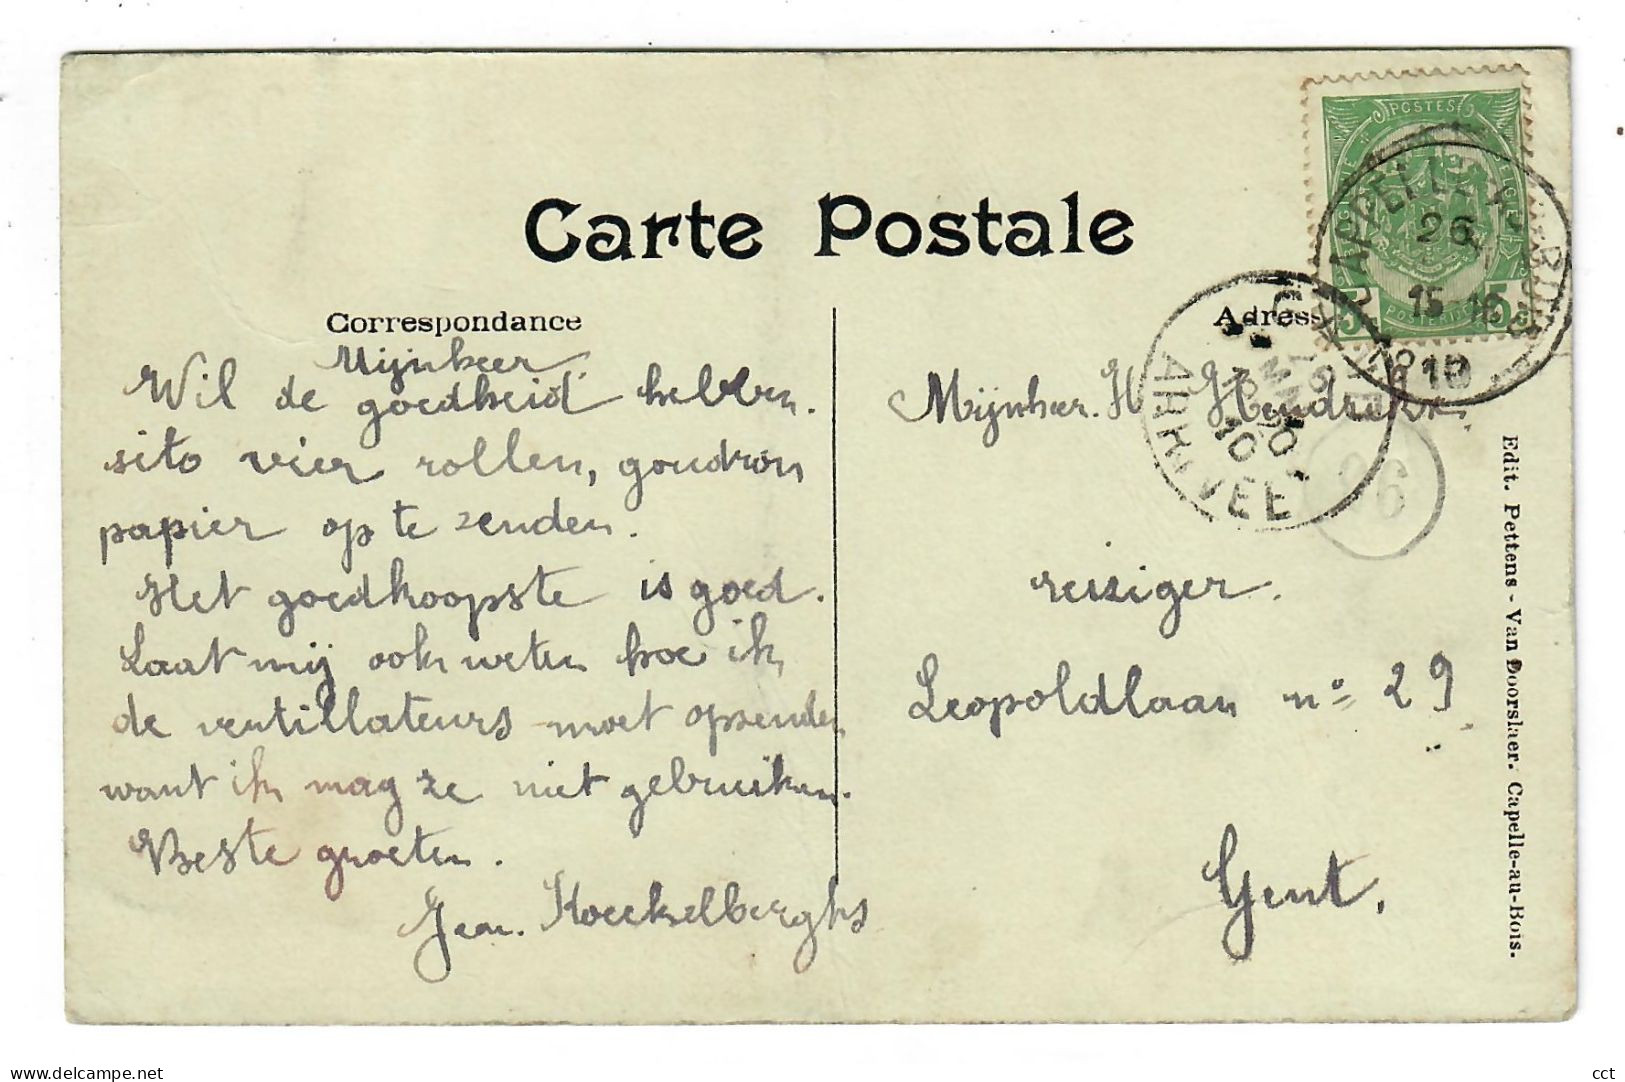 Carte Postale
Correspondance
Mijnheer
Wil de goedheid hebben.
sito vier rollen, goudron
papier op te zenden.
Het goedkoopste is goed.
Laat mij ook weten hoe ik
de ventillateurs moet opzenden
want ik mag ze niet gebruiken.
Beste groeten.
Jean. Koeckelberghs
POSTES
26
15-16
1910
GENT
ARRIVEE
26
Mijnheer. H Hendrickx.
reiziger.
Leopoldlaan nº 29
Gent.
Edit. Pettens - Van Doorslaer. Capelle-au-Bois.
cct